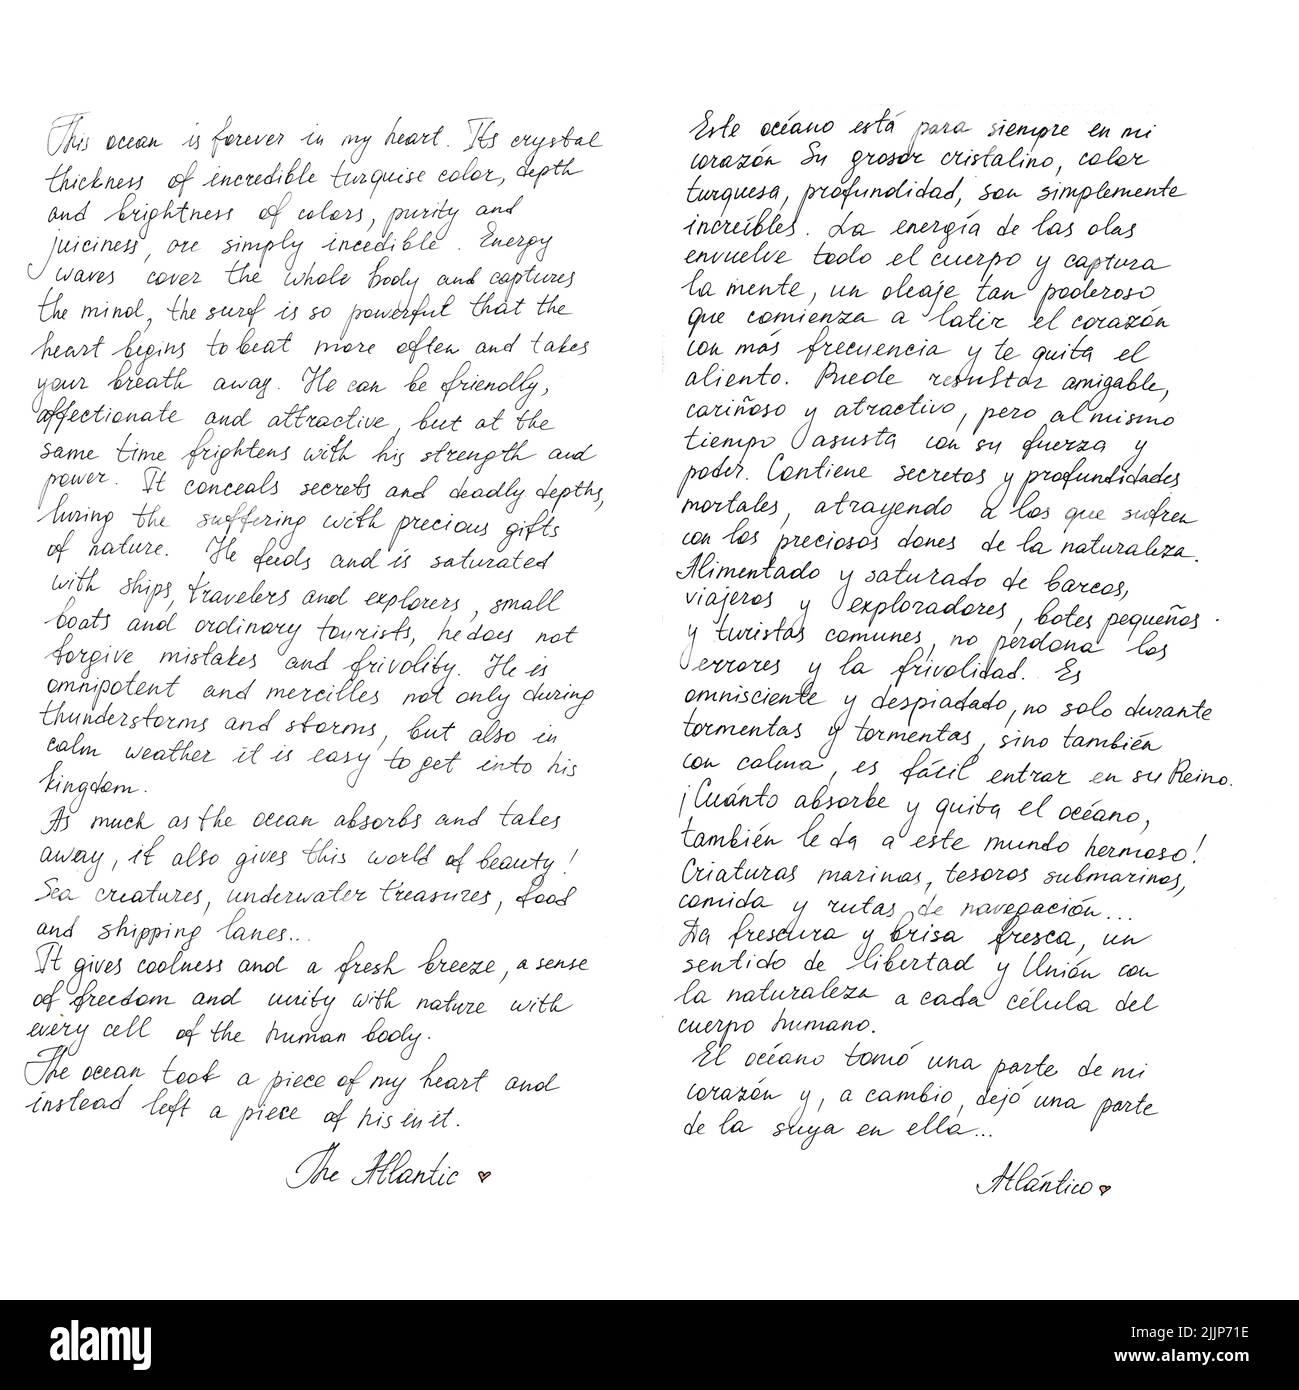 This ocean is forever in my heart. Its crystal
thickness of incredible turquise color, depth
and brightness of colors, purity and
juiciness, are simply incedible. Energy
waves cover the whole body and captures
the mind, the surf is so powerful that the
heart begins to beat more often and takes
your breath away. He can be friendly,
affectionate and attractive, but at the
same time frightens with his strength and
power. It conceals secrets and deadly depths,
luring the suffering with precious gifts
of nature. He feeds and is saturated
with ships, travelers and explorers, small
boats and ordinary tourists, he does not
forgive mistakes and frivolity. He is
omnipotent and mercilles not only during
thunderstorms and storms, but also in
calm weather it is easy to get into his
kingdom.
As much as the ocean absorbs and takes
away, it also gives this world of beauty!
Sea creatures, underwater treasures, food
and shipping lanes...
It gives coolness and a fresh breeze, a sense
of freedom and unity with nature with
every cell of the human body.
The ocean took a piece of my heart and
instead left a piece of his in it.
The Atlantic
Este océano está para siempre en mi
corazón Su grosor cristalino, color
turquesa, profundidad, son simplemente
increíbles. La energía de las olas
envuelve todo el cuerpo y captura
la mente, un oleaje tan poderoso
que comienza a latir el corazón
con más frecuencia y te quita el
aliento. Puede resultar amigable,
cariñoso y atractivo, pero al mismo
tiempo asusta con su fuerza y
poder. Contiene secretos y profundidades
mortales, atrayendo a los que sufren
con los preciosos dones de la naturaleza.
Alimentado y saturado de barcos,
viajeros y exploradores, botes pequeños.
y turistas comunes, no perdona los
errores y la frivolidad. Es
omnisciente y despiadado, no solo durante
tormentas y tormentas, sino también
con calma, es fácil entrar en su Reino.
¡Cuánto absorbe y quita el océano,
también le da a este mundo hermoso!
Criaturas marinas, tesoros submarinos,
comida y rutas de navegación...
Da frescura y brisa fresca, un
sentido de libertad y Unión con
la naturaleza a cada célula del
cuerpo humano.
El océano tomó una parte de mi
corazón y, a cambio, dejó una parte
de la suya en ella...
Atlántico
alamy
Image ID: 2JJP71E
www.alamy.com